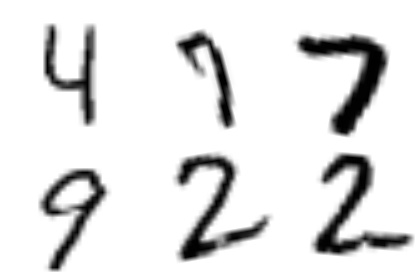 4 7 7
9 2 2